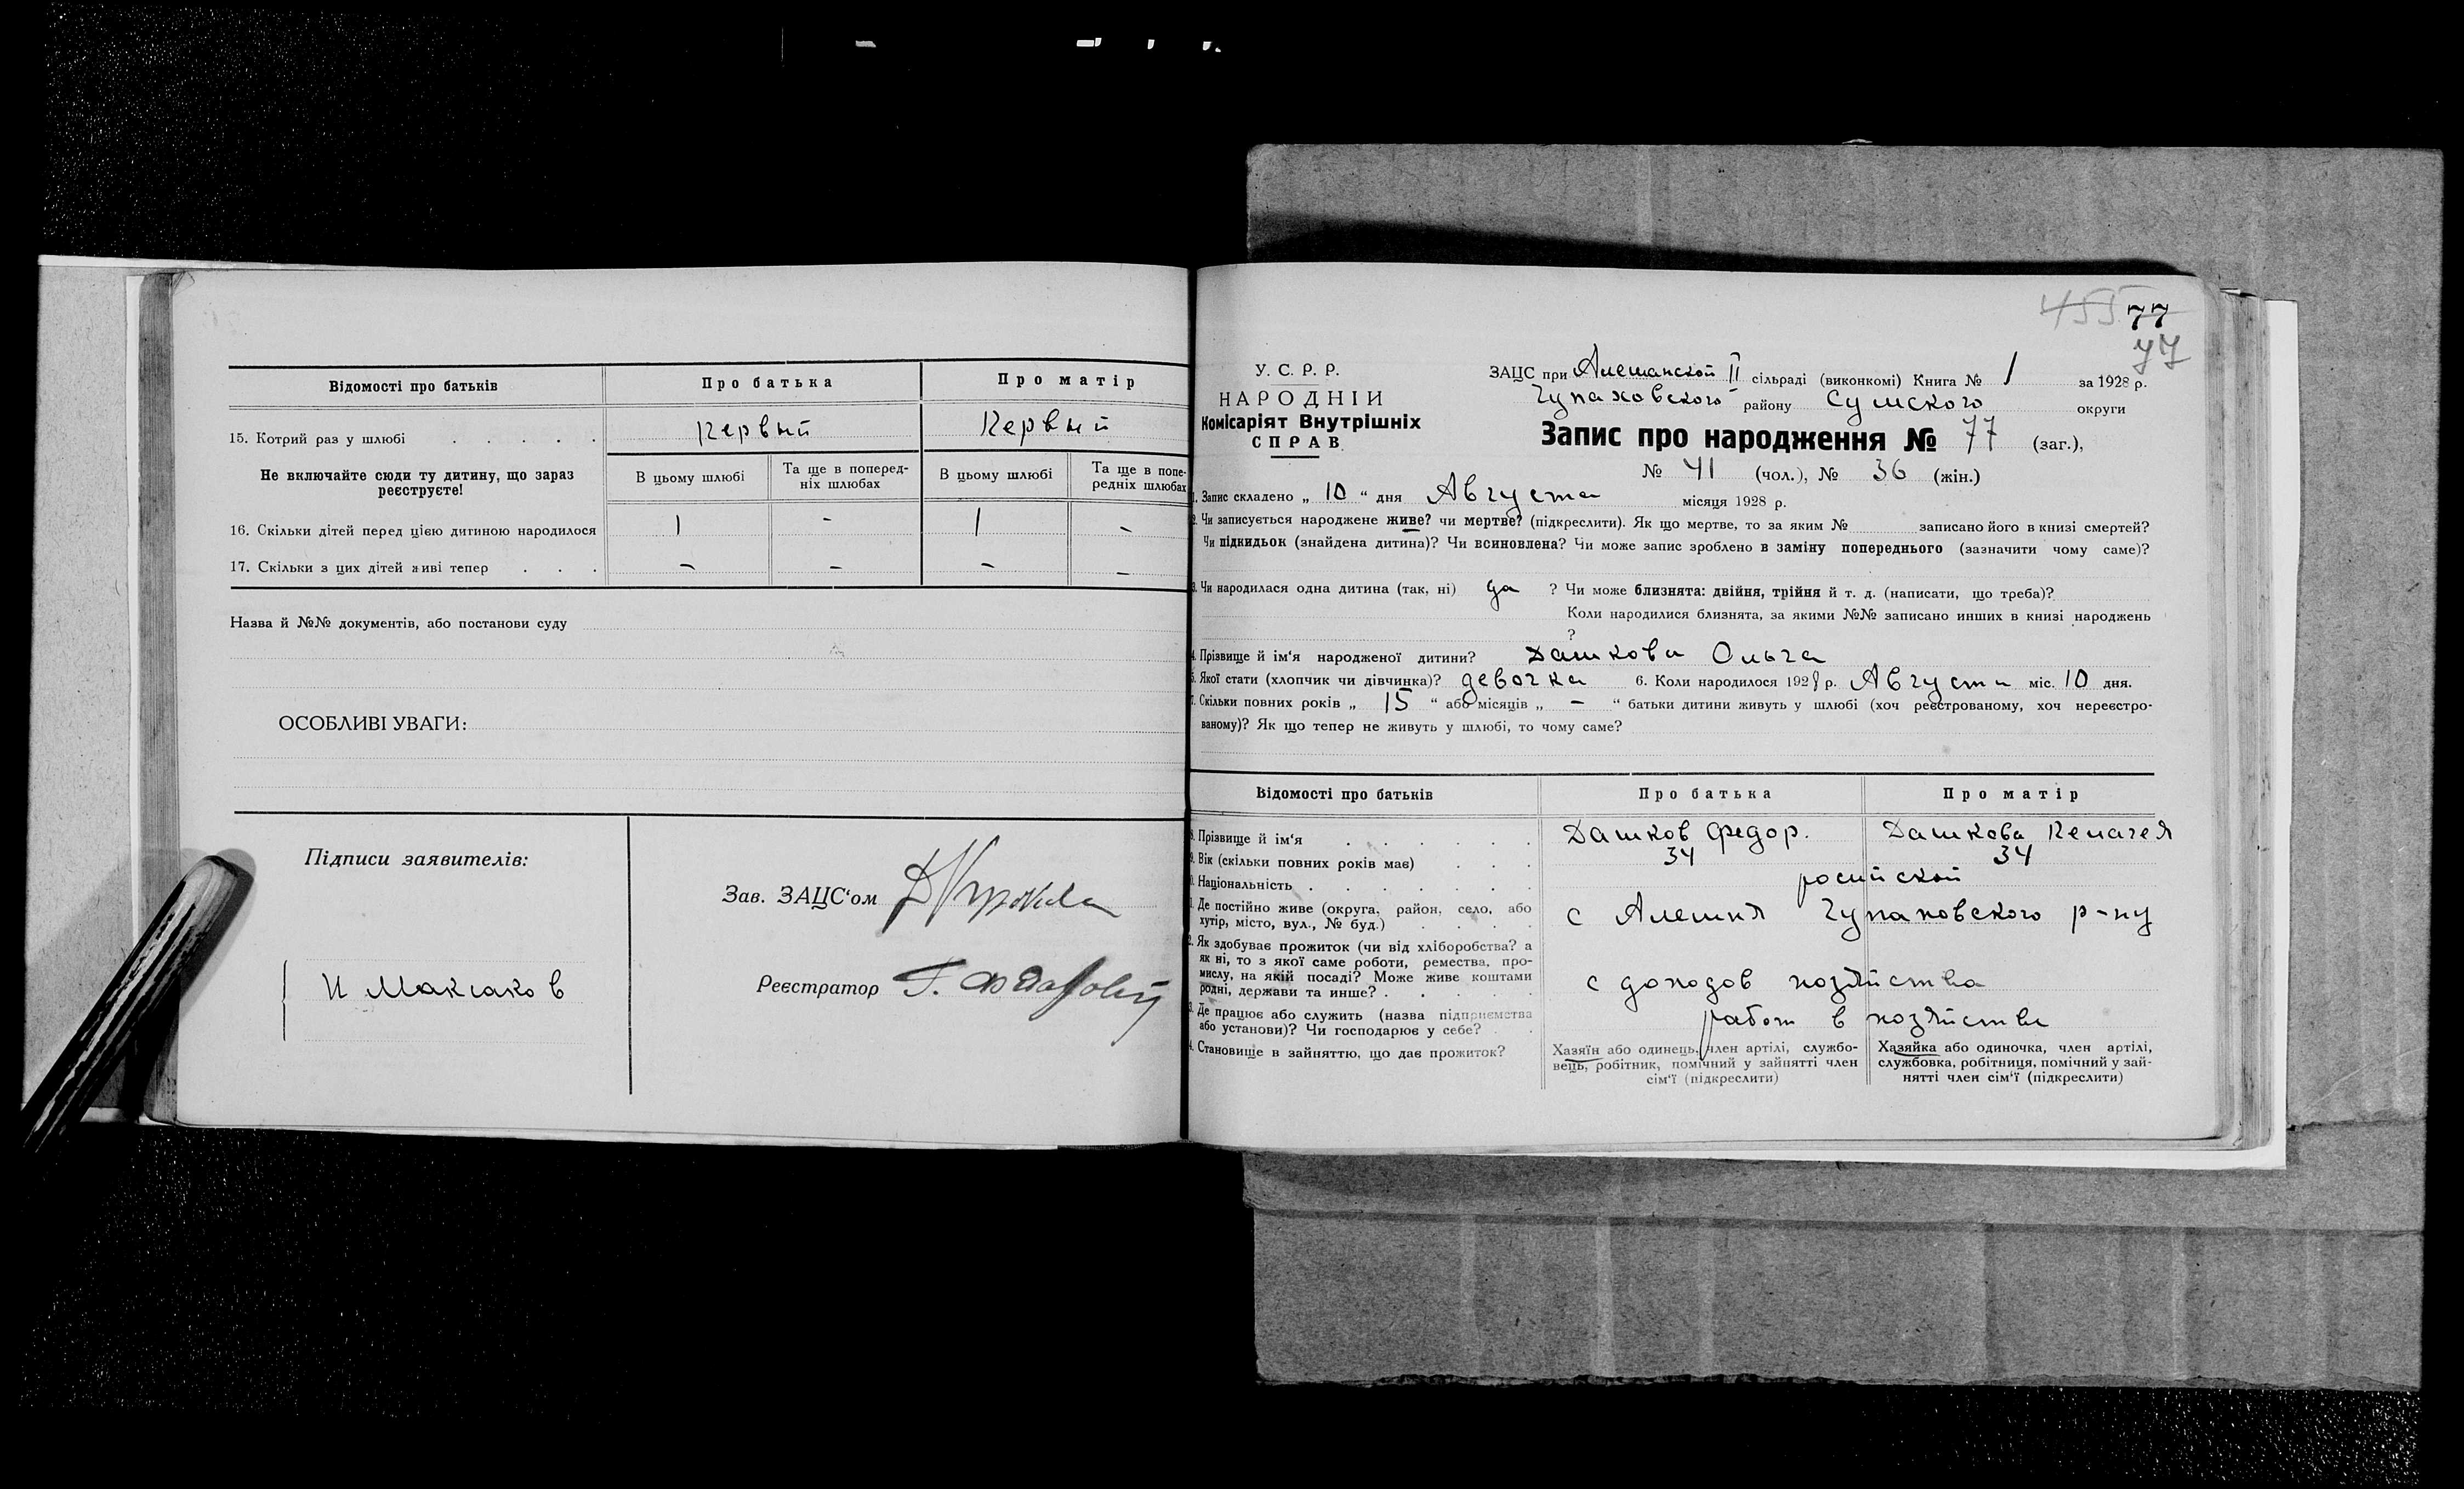 Відомості про батьків
Про батька
Про матір
15. Котрий раз у шлюбі
Первый
Первый
Не включайте сюди ту дитину, що зараз реєструєте!
В цьому шлюбі
Та ще в поперед-
ніх шлюбах
В цьому шлюбі
Та ще в попе-
редніх шлюбах
16. Скільки дітей перед цією дитиною народилося
1
-
1
-
17. Скільки з цих дітей живі тепер
-
-
-
-
Назва й №№ документів, або постанови суду
ОСОБЛИВІ УВАГИ:
Підписи заявителів:
И Максаков
Зав. ЗАЦС‘ом
Реєстратор
455 77
77
У. С. Р. Р.
НАРОДНІЙ
Комісаріят Внутрішніх
СПРАВ
ЗАЦС при Алешанской II сільраді (виконкомі) Книга № 1 за 1928 р.
Чупаховского району Сумского округи
Запис про народження № 77 (заг.),
№ 41 (чол.), № 36 (жін.)
1. Запис складено „ 10 “ дня Августа місяця 1928 р.
2. Чи записується народжене живе? чи мертве? (підкреслити). Як що мертве, то за яким № записано його в книзі смертей?
Чи підкидьок (знайдена дитина)? Чи всиновлена? Чи може запис зроблено в заміну попереднього (зазначити чому саме)?
3. Чи народилася одна дитина (так, ні) да ? Чи може близнята: двійня, трійня й т. д. (написати, що треба)?
Коли народилися близнята, за якими №№ записано инших в книзі народжень
?
4. Прізвище й ім‘я народженої дитини? Дашкова Ольга
5. Якої стати (хлопчик чи дівчинка)? девочка 6. Коли народилося 1928 р. Августа міс. 10 дня.
7. Скільки повних років „ 15 “ або місяців „ - “ батьки дитини живуть у шлюбі (хоч реєстрованому, хоч нереєстро-
ваному)? Як що тепер не живуть у шлюбі, то чому саме?
Відомості про батьків
Про батька
Про матір
8. Прізвище й ім‘я
Дашков Федор.
Дашкова Пелагея
9. Вік (скільки повних років має)
34
34
10. Національність
росийской
11. Де постійно живе (округа, район, село, або
хутір, місто, вул., № буд.)
с Алешня Чупаховского р-ну
12. Як здобуває прожиток (чи від хліборобства? а
як ні, то з якої саме роботи, ремества, про-
мислу, на якій посаді? Може живе коштами
родні, держави та инше?
с доходов хозяйства
13. Де працює або служить (назва підприємства
або установи)? Чи господарює у себе?
работ в хозяйстве
14. Становище в зайняттю, що дає прожиток?
Хазяїн або одинець, член артілі, службо-
вець, робітник, помічний у зайнятті член
сім‘ї (підкреслити)
Хазяйка або одиночка, член артілі,
службовка, робітниця, помічний у зай-
нятті член сім‘ї (підкреслити)